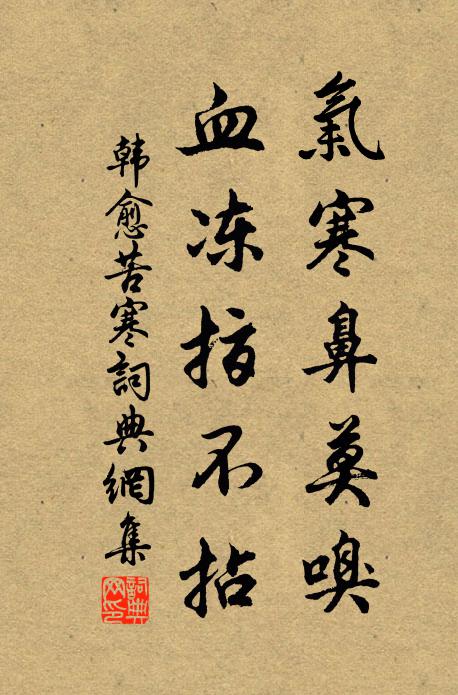 氣寒鼻莫嗅
血冻指不拈
韩愈苦寒詞典網集
詞典网印